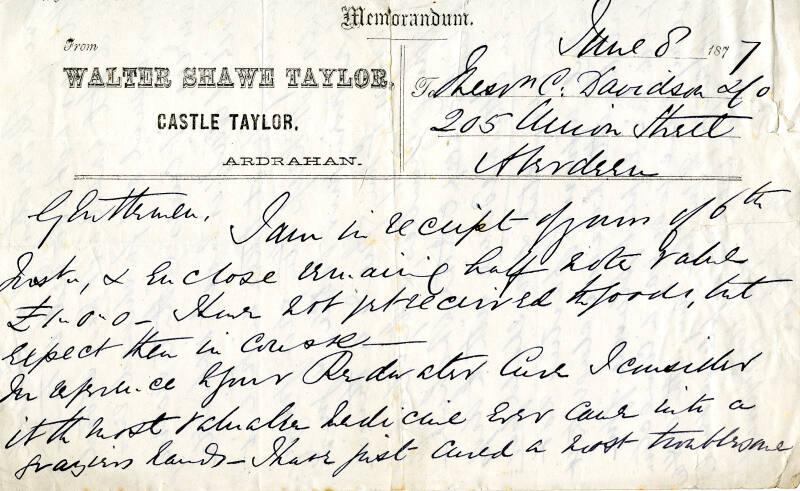 Memorandum.
June 8 1877
From
WALTER SHAWE TAYLOR,
CASTLE TAYLOR,
ARDRAHAN.
To Messrs C. Davidson &
205 Union Street
Aberdeen
Gentlemen,
I am in receipt of yours of 6th
Inst, & enclose remaining half note value
£1-0-0 - Have not yet received the goods, but
expect them in course -
In reference to your Redwater Cure I consider
it the most valuable medicine ever came into a
graziers hands - I have just cured a most troublesome